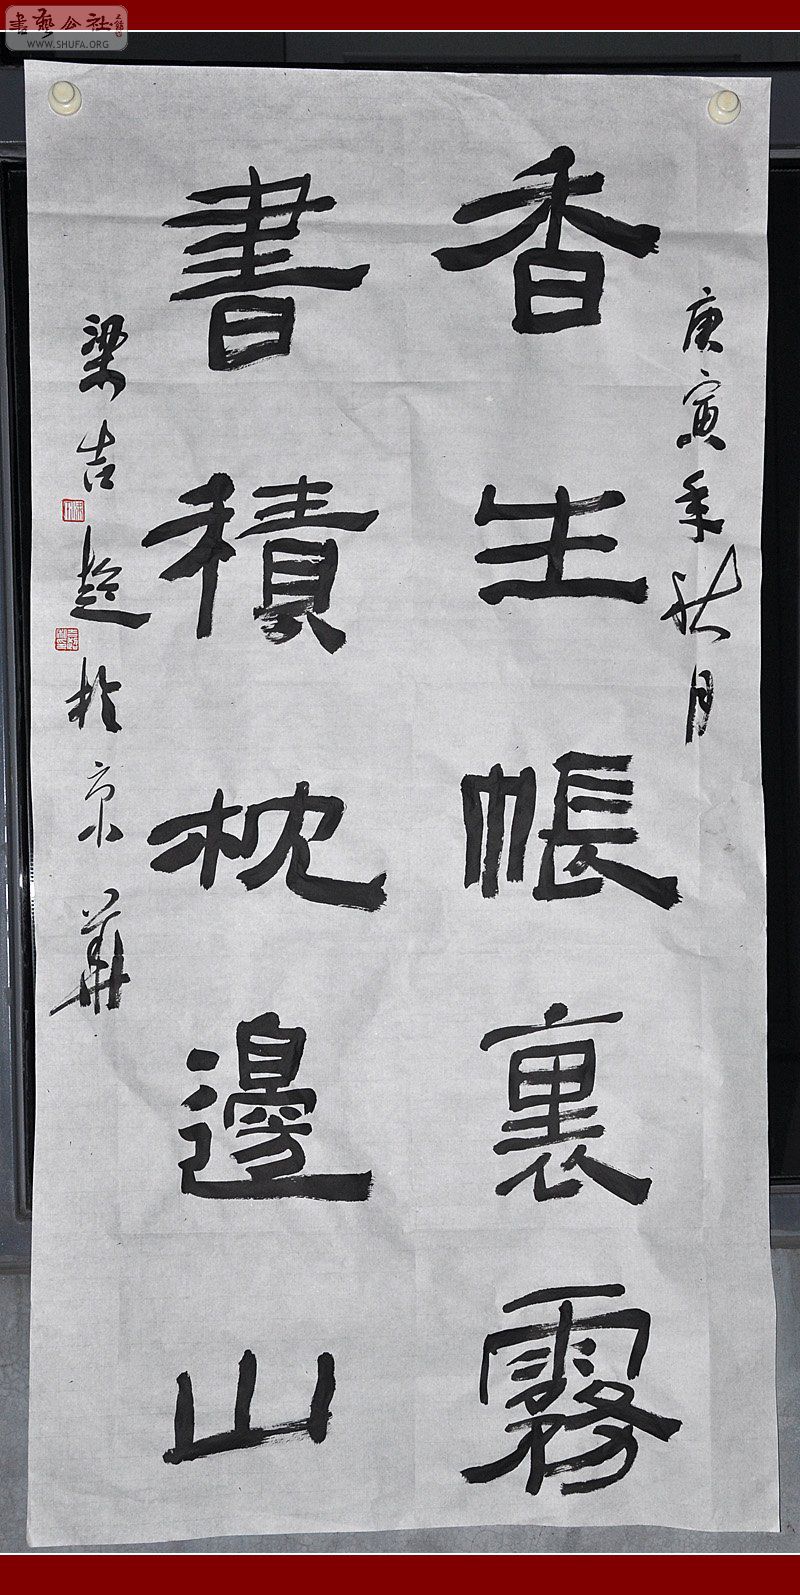 書藝公社
WWW.SHUFA.ORG
庚寅年秋月
香生帳裏霧
書積枕邊山
梁吉超於京華